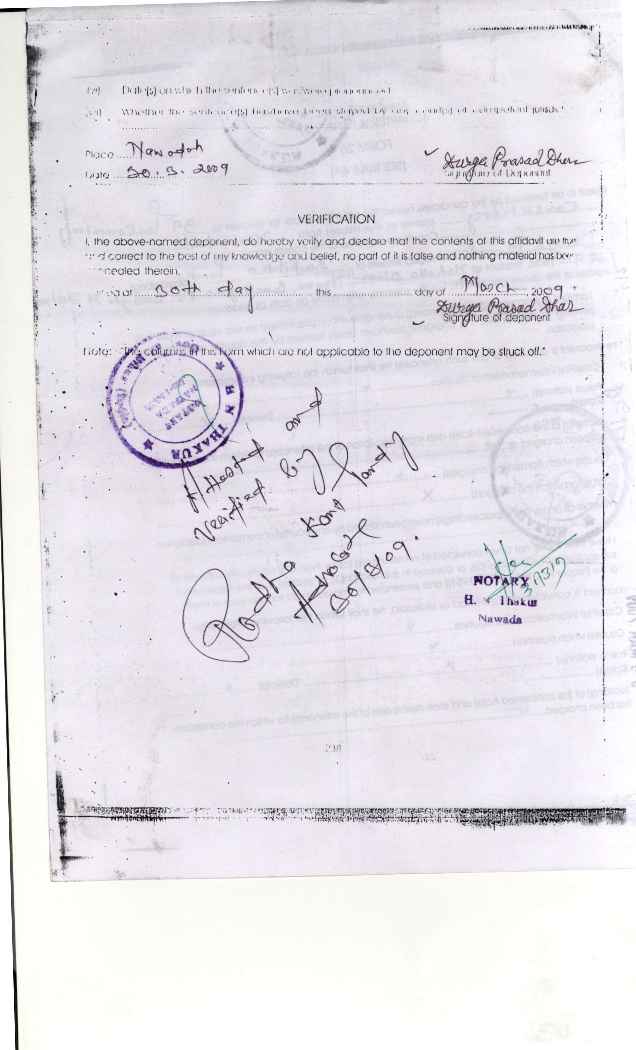 (v) Date(s) on which the sentence(s) was/were pronounced
(vi) Whether the sentence(s) has/have been stayed by any court(s) of competent
Place .... Nawadah
Date .... 30.3.2009
Durga Prasad Dhar
Signature of Deponent
VERIFICATION
I, the above-named deponent, do hereby verify and declare that the contents of this affidavit are true
and correct to the best of my knowledge and belief, no part of it is false and nothing material has been
concealed therein.
at ...... 30th day .......... this .......... day of .... March ...., 2009.
Durga Prasad Dhar
Signature of deponent
Note: "The columns in this form which are not applicable to the deponent may be struck off."
H N THAKUR
NOTARY
Attested and
Verified by
Radha Kant
Advocate
30/3/09.
NOTARY
H. N Thakur
Nawada